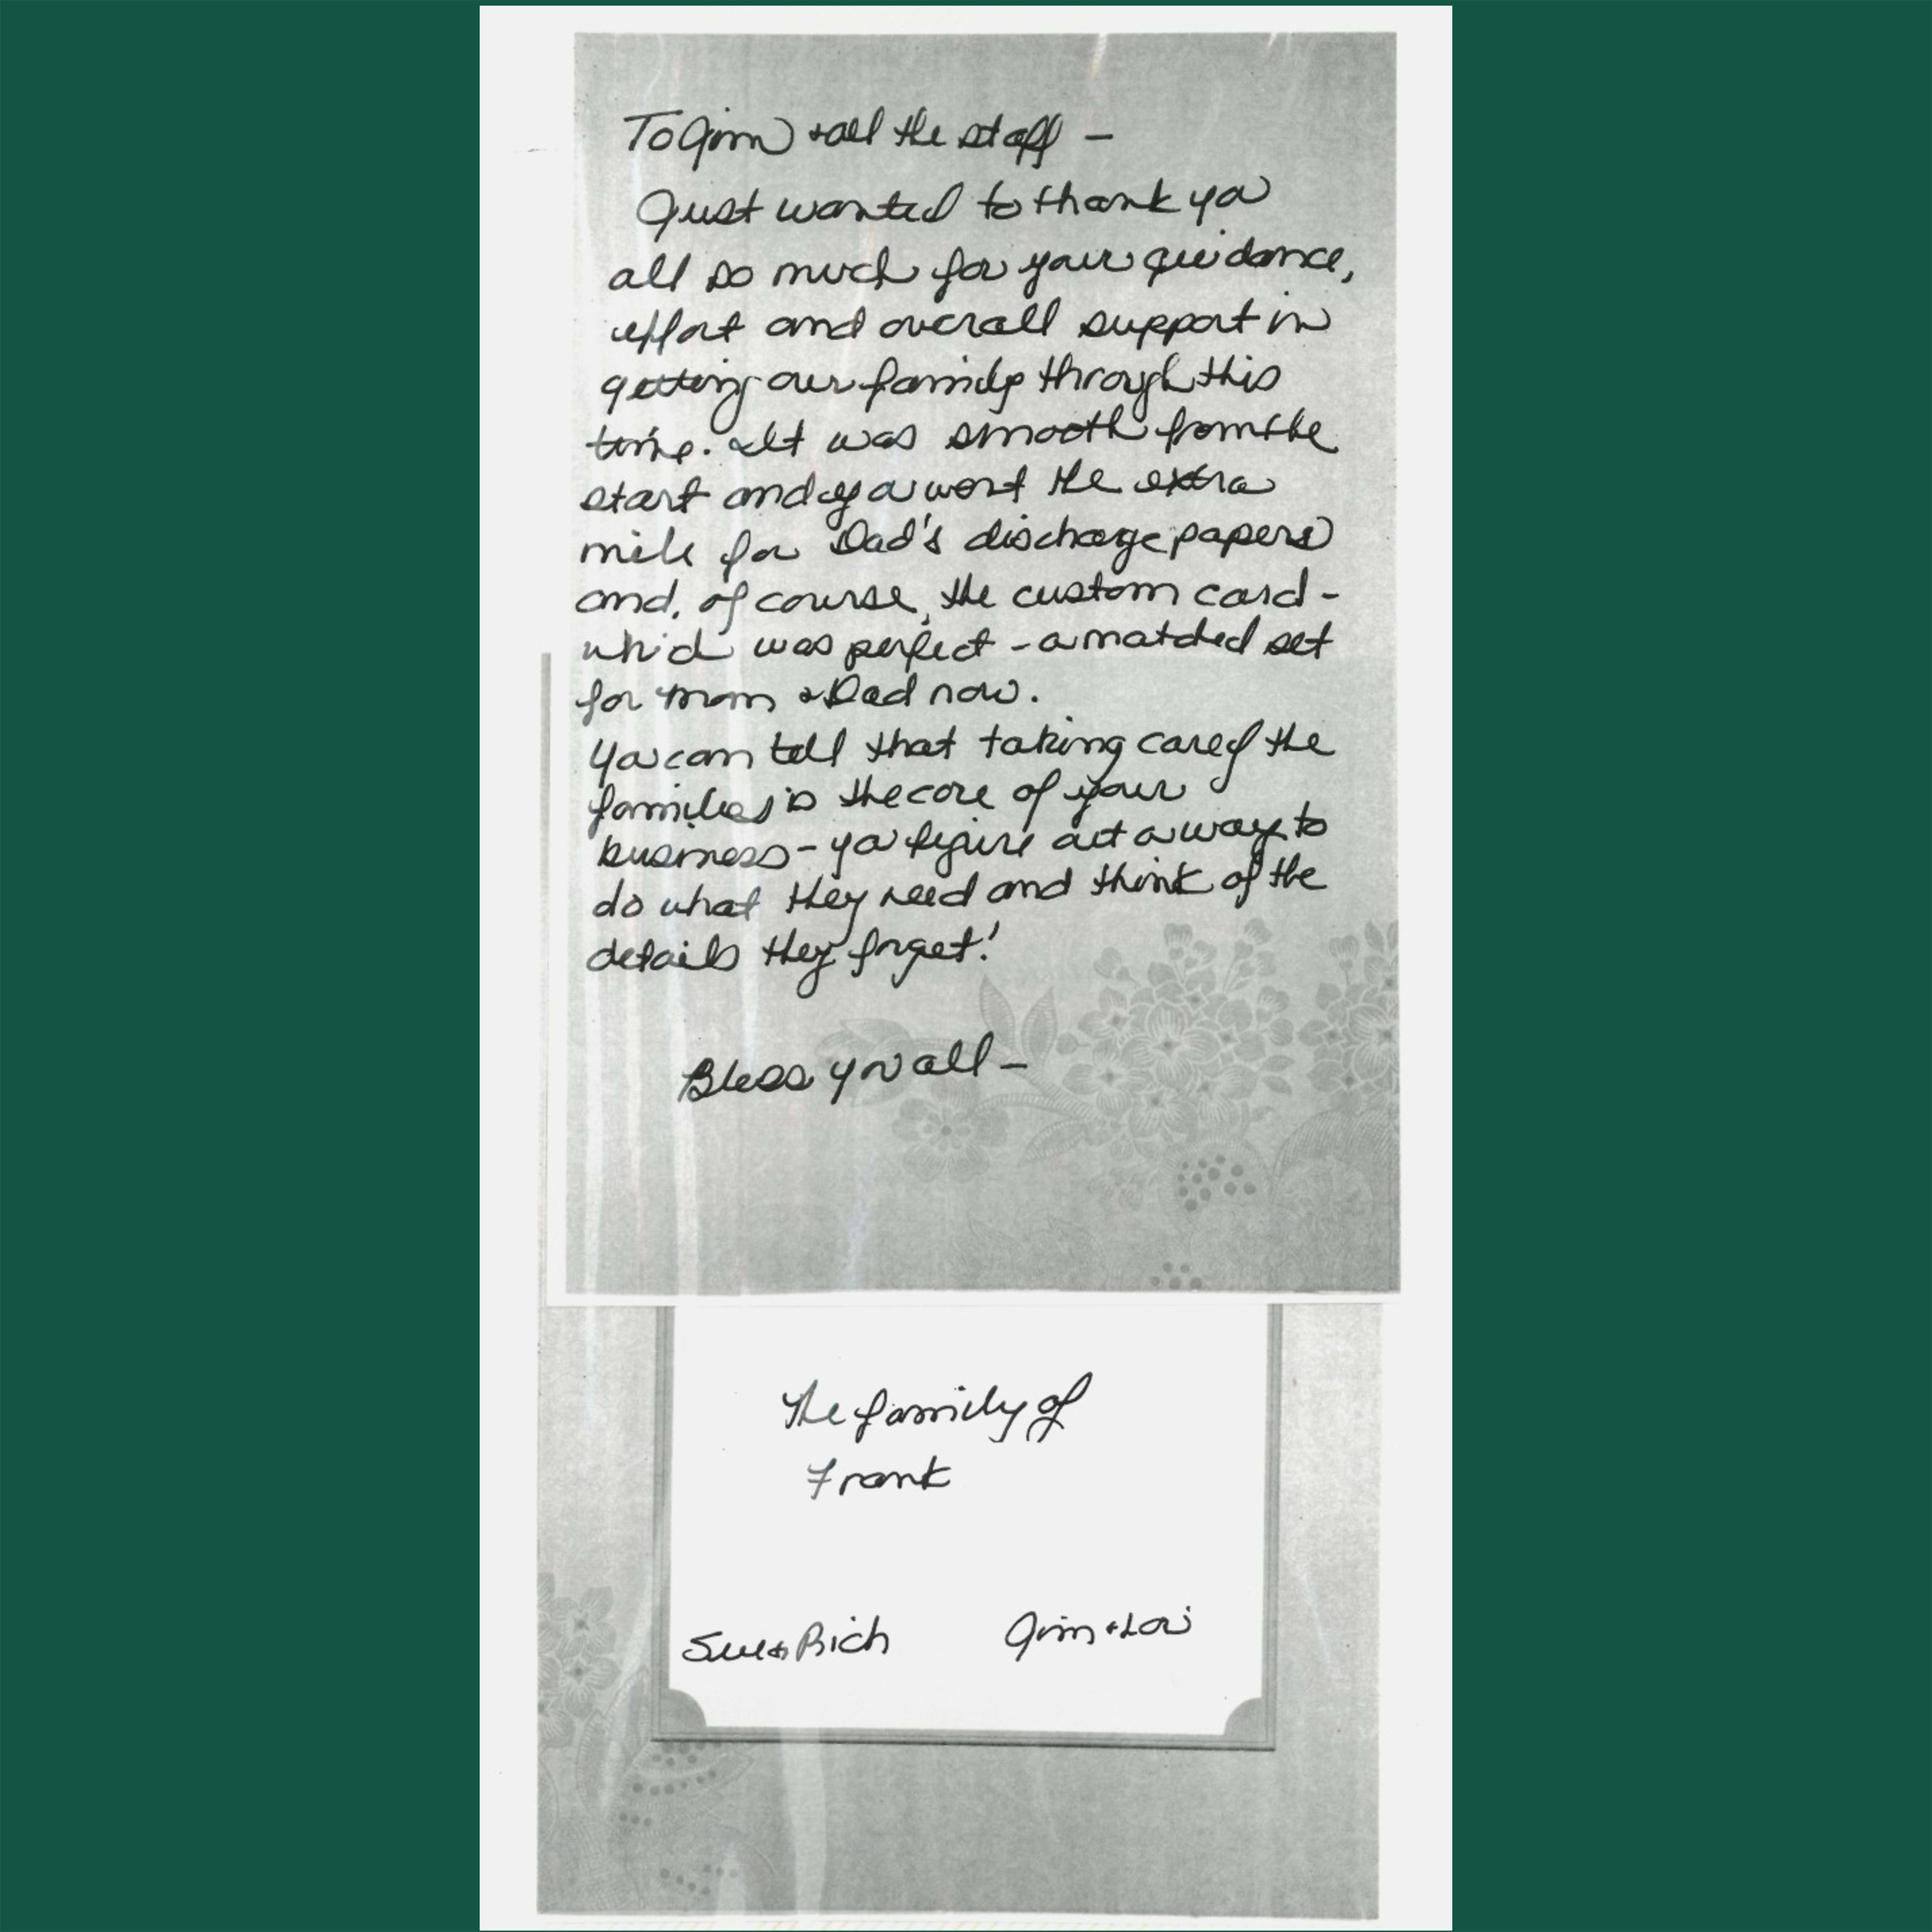 To Jim + all the staff –
Just wanted to thank you
all so much for your guidance,
effort and overall support in
getting our family through this
time. It was smooth from the
start and you went the extra
mile for Dad's discharge papers
and, of course, the custom card -
which was perfect - a matched set
for Mom & Dad now.
You can tell that taking care of the
families is the core of your
business - you figure out a way to
do what they need and think of the
details they forget!
Bless you all –
The family of
Frank
Sue & Rich Jim + Lori